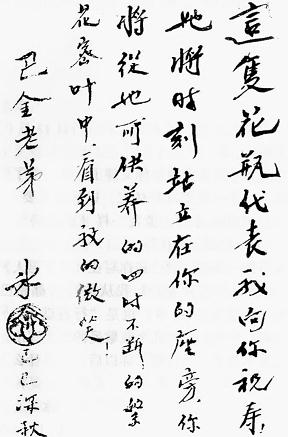 這隻花瓶代表我向你祝寿，
她將时刻站立在你的座旁，你
將從她所供养的四时不断的繁
花密叶中，看到我的微笑！
巴金老弟
冰心
己巳深秋